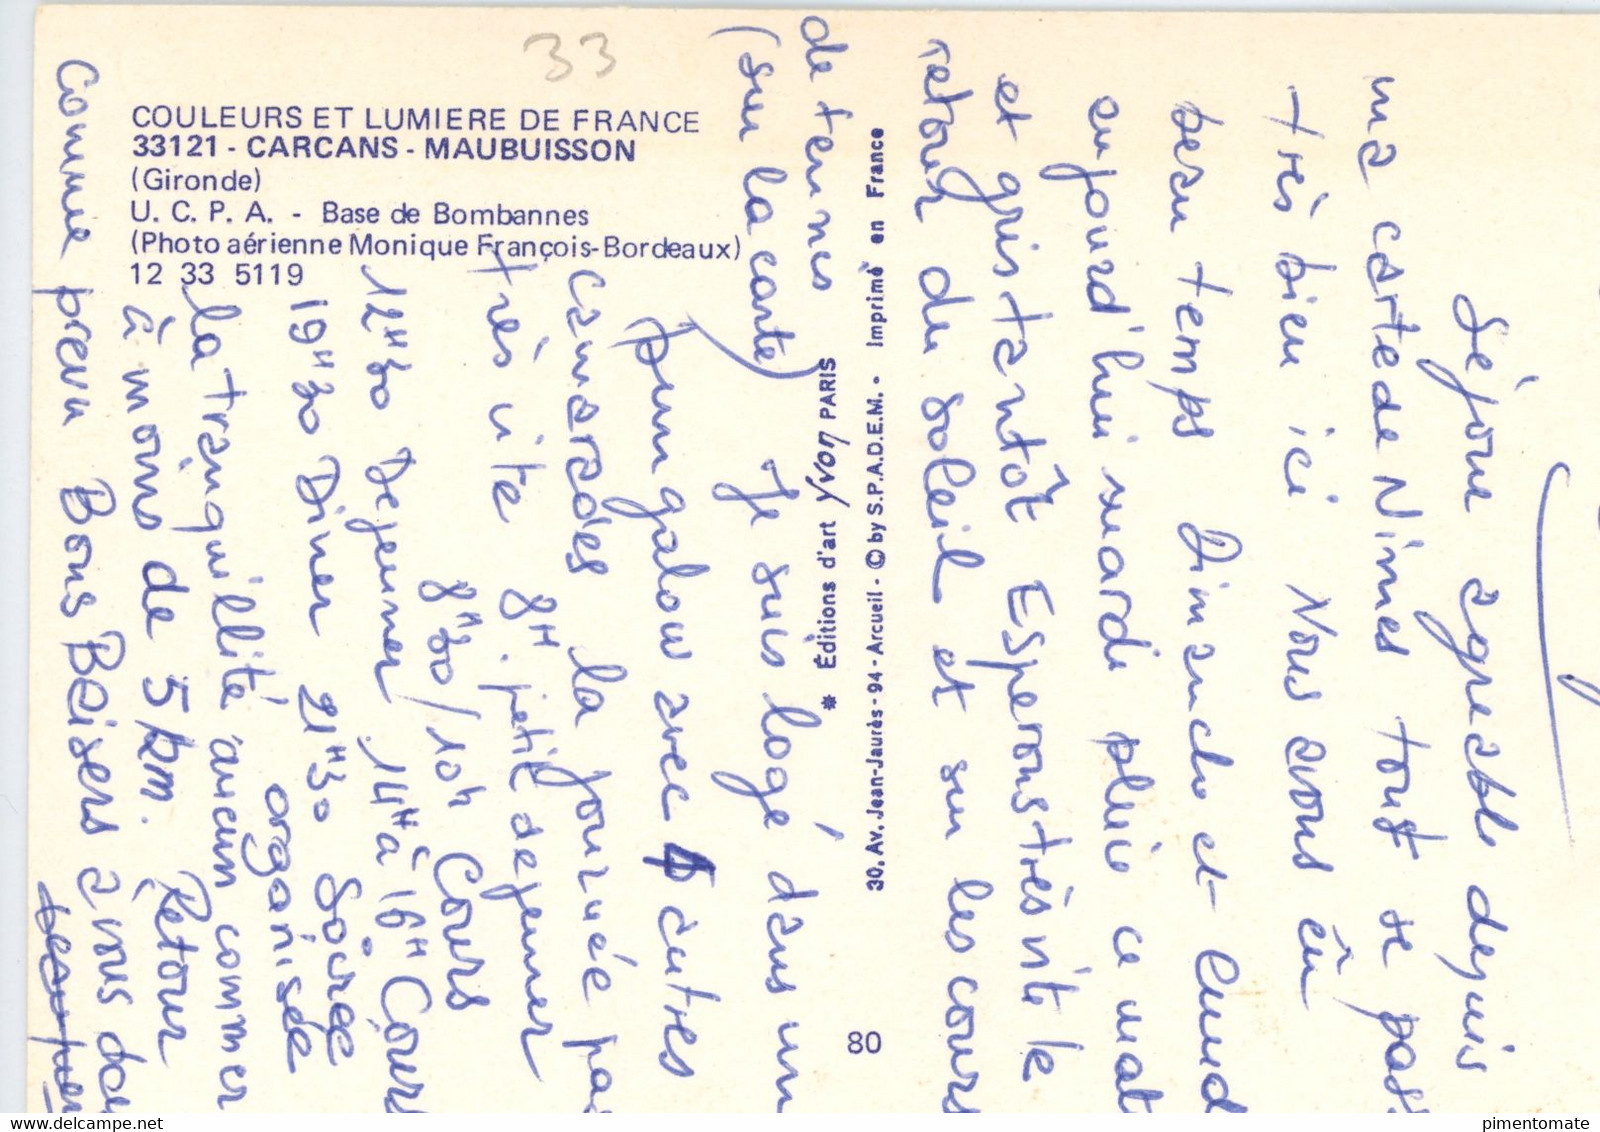 33
COULEURS ET LUMIERE DE FRANCE
33121 - CARCANS - MAUBUISSON
(Gironde)
U. C. P. A. - Base de Bombannes
(Photo aérienne Monique François-Bordeaux)
12 33 5119
* Éditions d'art Yvon PARIS
30, Av. Jean-Jaurès - 94 - Arcueil - © by S.P.A.D.E.M. - Imprimé en France
80
Séjour agreable depuis
ma carte de Nimes tout se pas
très bien ici Nous avons êu
beau temps Dimanche et Lund
aujourd'hui mardi pluie ce mat
et gris tantôt Esperons très vite le
retour du soleil et sur les cours
de tennis
(sur la carte) Je suis logé dans un
bungalow avec 5 autres
camarades la journée pa
très vite 8H. petit dejeuner
8H30/10h Cours
12H30 Dejeuner. 14H à 16H Cours
19H30 Diner 21H30 Soirée
organisée
la tranquillité aucun commer
à moins de 5 km. Retour
comme prevu Bons Baisers a vous deux
pimentomate